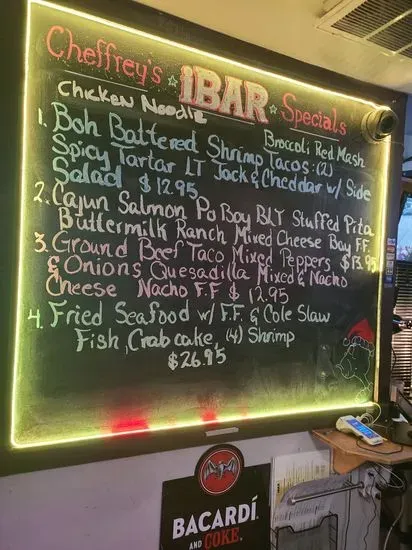 Cheffrey's iBAR Specials
Chicken Noodle
Broccoli Red Mash
1. Boh Battered Shrimp Tacos: (2)
Spicy Tartar LT Jack & Cheddar w/ Side
Salad $12.95
2. Cajun Salmon Po Boy BLT Stuffed Pita
Buttermilk Ranch Mixed Cheese Bay F.F.
$13.95
3. Ground Beef Taco Mixed Peppers
& Onions Quesadilla Mixed & Nacho
Cheese Nacho F.F $12.95
4. Fried Seafood w/ F.F. & Cole Slaw
Fish, Crab cake, (4) Shrimp
$26.95
BACARDÍ
AND COKE